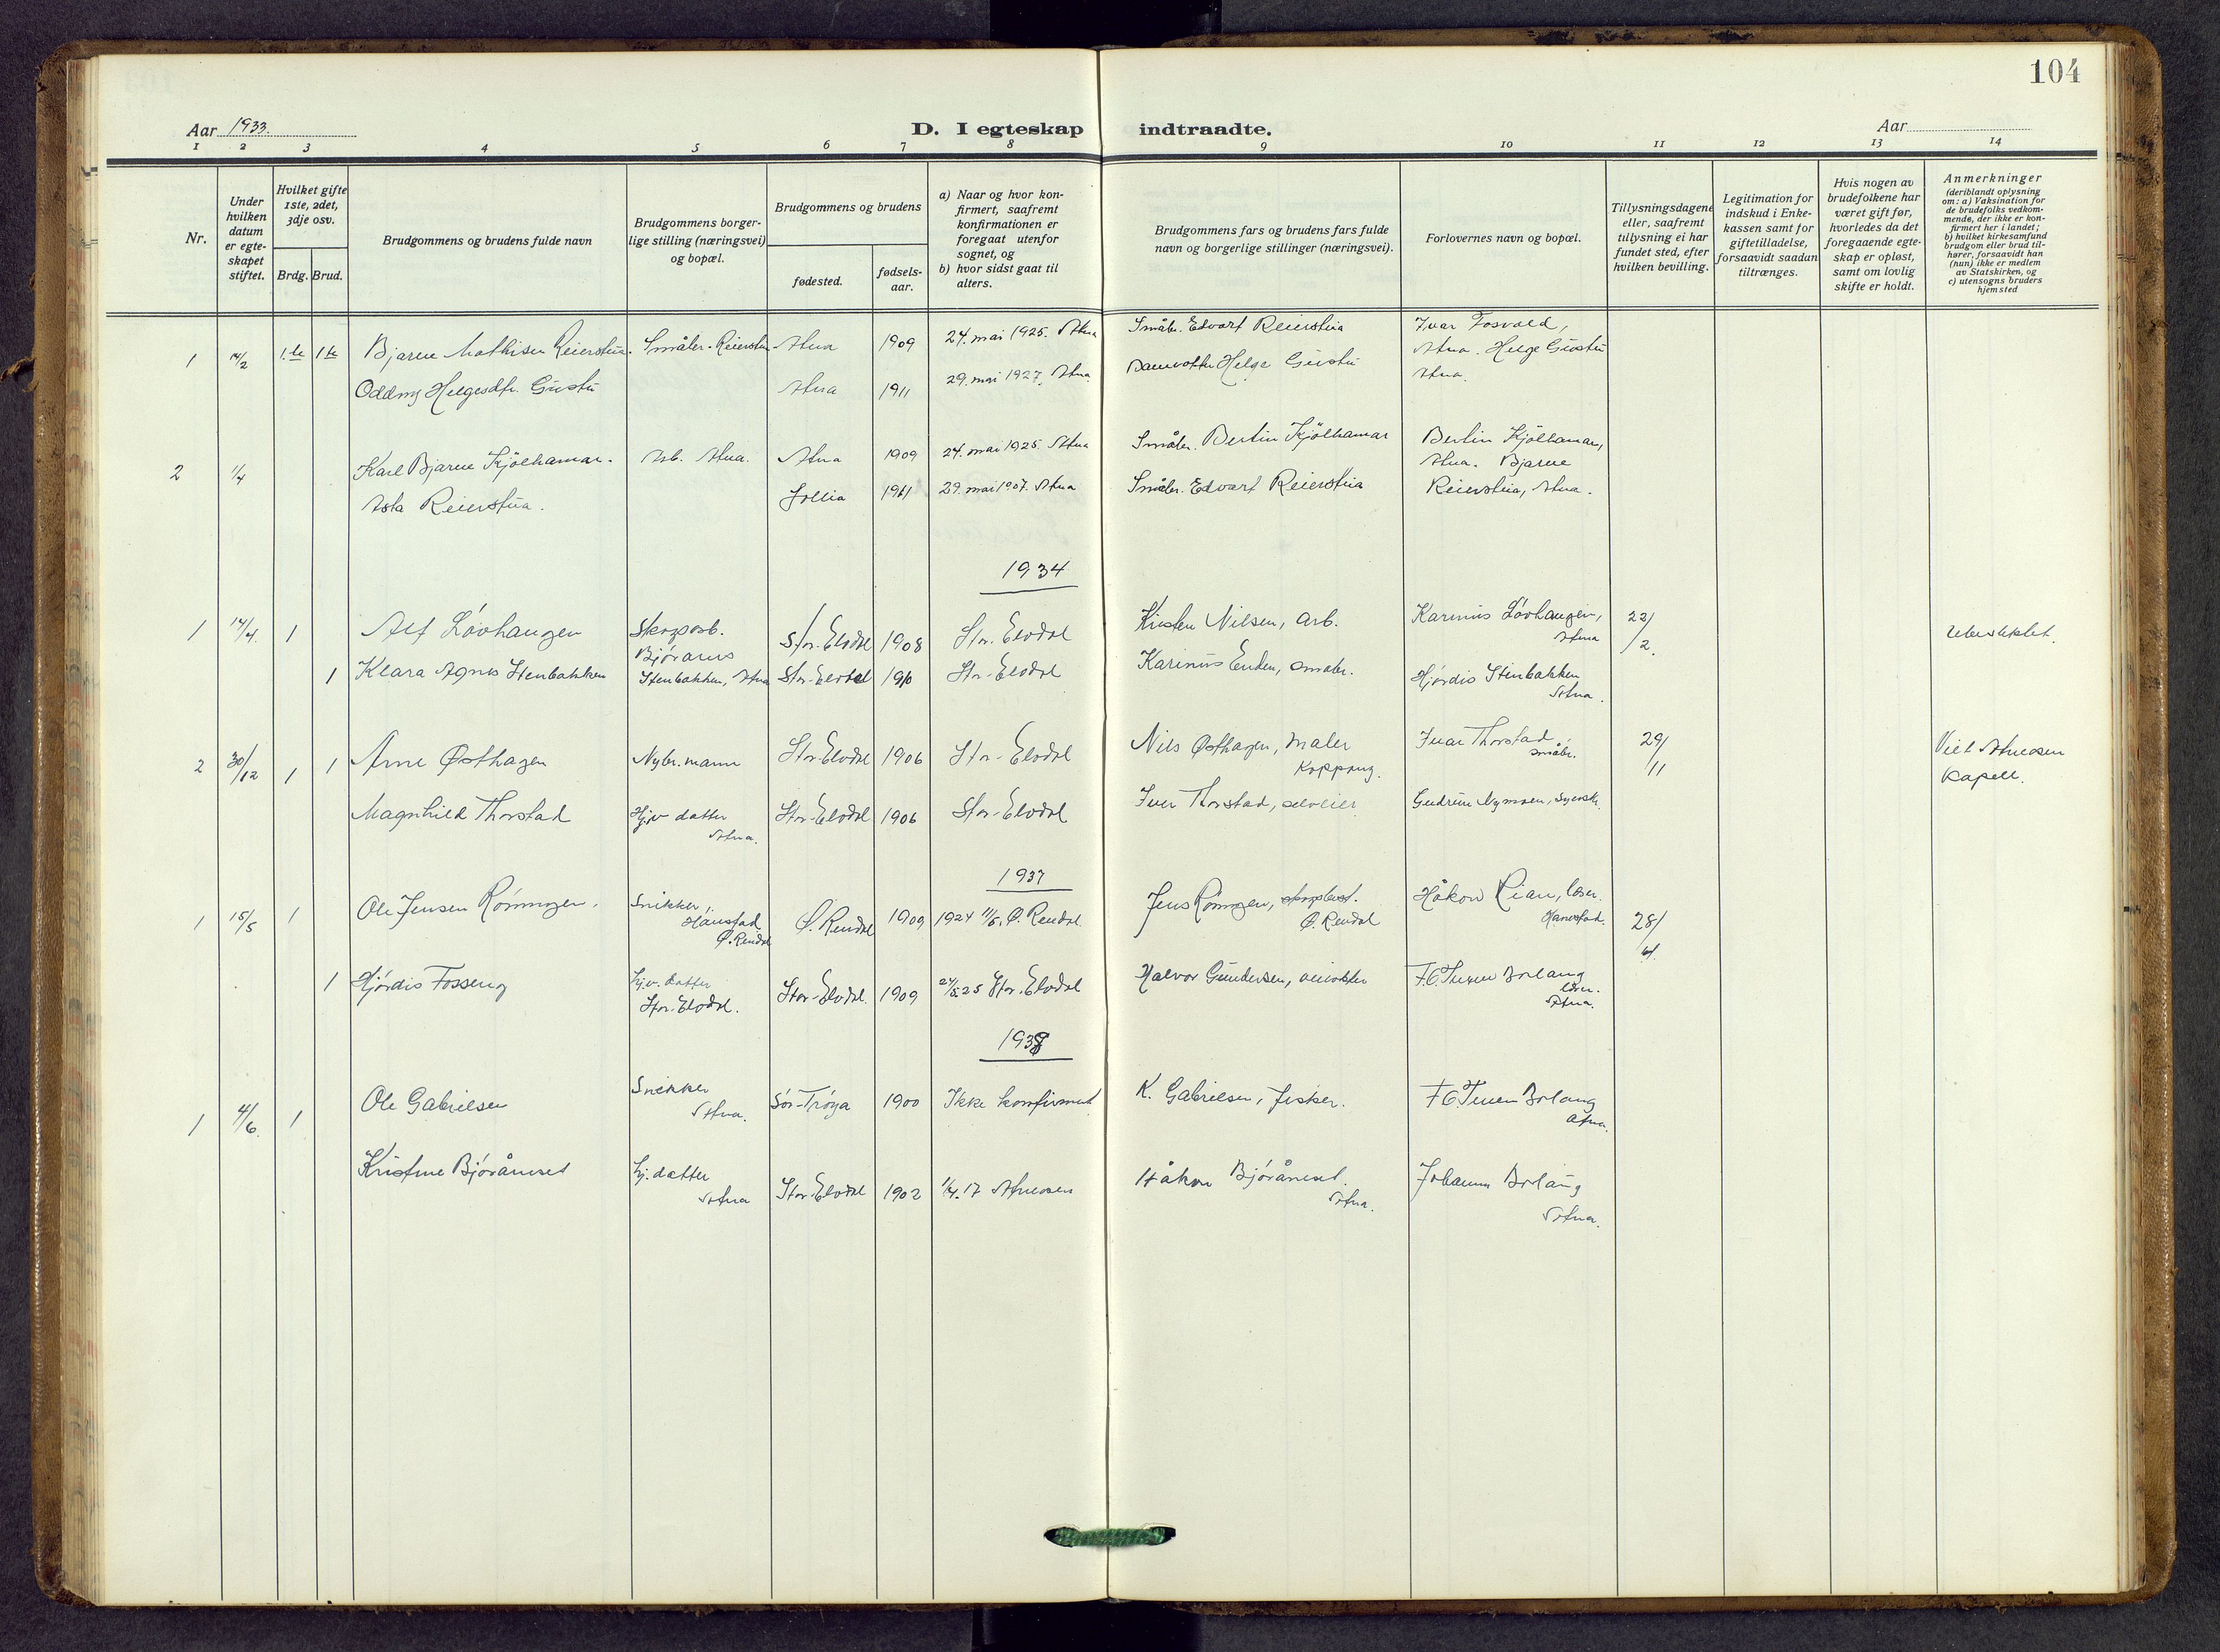 104
Aar 1933.
D. I egteskap indtraadte.
Aar
1 2 3 4 5 6 7 8 9 10 11 12 13 14
Nr.
Under hvilken datum er egteskapet stiftet.
Hvilket gifte 1ste, 2det, 3dje osv.
Brdg. Brud.
Brudgommens og brudens fulde navn
Brudgommens borgerlige stilling (næringsvei) og bopæl.
Brudgommens og brudens
fødested.
fødselsaar.
a) Naar og hvor konfirmert, saafremt konfirmationen er foregaat utenfor sognet, og
b) hvor sidst gaat til alters.
Brudgommens fars og brudens fars fulde navn og borgerlige stillinger (næringsvei).
Forlovernes navn og bopæl.
Tillysningsdagene eller, saafremt tillysning ei har fundet sted, efter hvilken bevilling.
Legitimation for indskud i Enkekassen samt for giftetilladelse, forsaavidt saadan tiltrænges.
Hvis nogen av brudefolkene har været gift før, hvorledes da det foregaaende egteskap er opløst, samt om lovlig skifte er holdt.
Anmerkninger
(deriblandt oplysning om: a) Vaksination for de brudefolks vedkommende, der ikke er konfirmert her i landet; b) hvilket kirkesamfund brudgom eller brud tilhører, forsaavidt han (hun) ikke er medlem av Statskirken, og c) utensogns bruders hjemsted
1 14/2 1.te 1te Bjarne Mathisen Reierstua. Småbr. Reierstua Atna 1909 24. mai 1925. Atna Småbr. Edvart Reierstua Ivar Fosvold,
Atna. Helge Gustu
Oddny Helgesdtr. Gustu Atna 1911 29. mai 1927. Atna Helge Gustu Atna.
2 1/4 Karl Bjarne Kjølhamar. Arb. Atna. Atna 1909 24. mai 1925. Atna Småbr. Bertin Kjølhamar Bertin Kjølhamar,
Atna. Bjarne
Asta Reierstua. Sollia 1911 29. mai 1907. Atna Småbr. Edvart Reierstua Reierstua, Atna.
1934
1 14/4. 1 Alf Løvhaugen Skogsarb. Stor-Elvdal 1908 Stor-Elvdal Kristen Nilsen, arb. Karinus Løvhaugen,
Atna 22/2.
1 Klara Agnes Stenbakken Stenbakken, Atna Stor-Elvdal 1910 Stor-Elvdal Karinus Enden, småbr. Hjørdis Stenbakken
Atna.
2 30/12 1 1 Arne Østhagen Nybr. mann Stor-Elvdal 1906 Stor-Elvdal Nils Østhagen, maler
Koppang. Ivar Thorstad
småbr. 29/11 Viet Atneosen
kapell.
Magnhild Thorstad Hjv. datter
Atna. Stor-Elvdal 1906 Stor-Elvdal Iver Thorstad, selveier Gudrun Nymoen, syersk.
1937
1 15/5 1 Ole Jensen Rønningen. Snikker,
Hanestad
Ø. Rendal Ø. Rendal 1909 1924 11/5. Ø. Rendal Jens Rønningen,
Ø. Rendal Håkon Rian, lærer.
Hanestad. 28/4.
1 Hjørdis Fosseng hj.v. datter
Stor-Elvdal. Stor-Elvdal. 1909 24/5 25 Stor-Elvdal Halvor Gundersen,
Atna.
1938
1 4/6. 1 Ole Gabrielsen Snekker
Atna. Sør-Frøya 1900 Ikke konfirmert K. Gabrielsen, fisker. Borlaug
Atna.
Kristine Bjøråneset hj. datter
Atna Stor-Elvdal 1902 1/4. 17 Atneosen Håkon Bjøråneset.
Atna. Johanna Borlaug
Atna.